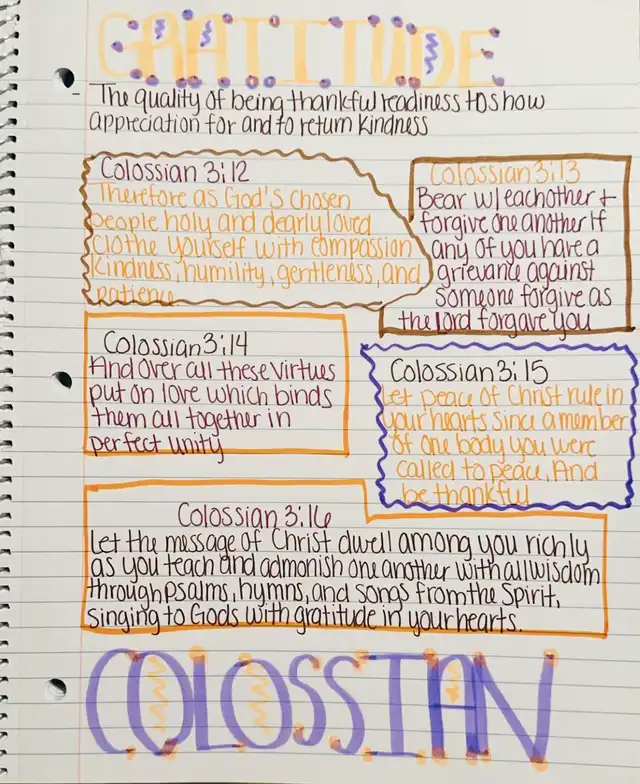 GRATITUDE
- The quality of being thankful readiness to show
appreciation for and to return kindness
Colossian 3:12
Therefore as God's chosen
people holy and dearly loved
clothe yourself with compassion
kindness, humility, gentleness, and
patience
Colossian 3:13
Bear w/ eachother +
forgive one another If
any of you have a
grievance against
someone forgive as
the Lord forgave you
Colossian 3:14
And over all these virtues
put on love which binds
them all together in
perfect unity
Colossian 3:15
Let peace of Christ rule in
your hearts since a member
of one body you were
called to peace. And
be thankful
Colossian 3:16
Let the message of Christ dwell among you richly
as you teach and admonish one another with all wisdom
through psalms, hymns, and songs from the Spirit,
singing to Gods with gratitude in your hearts.
COLOSSIAN